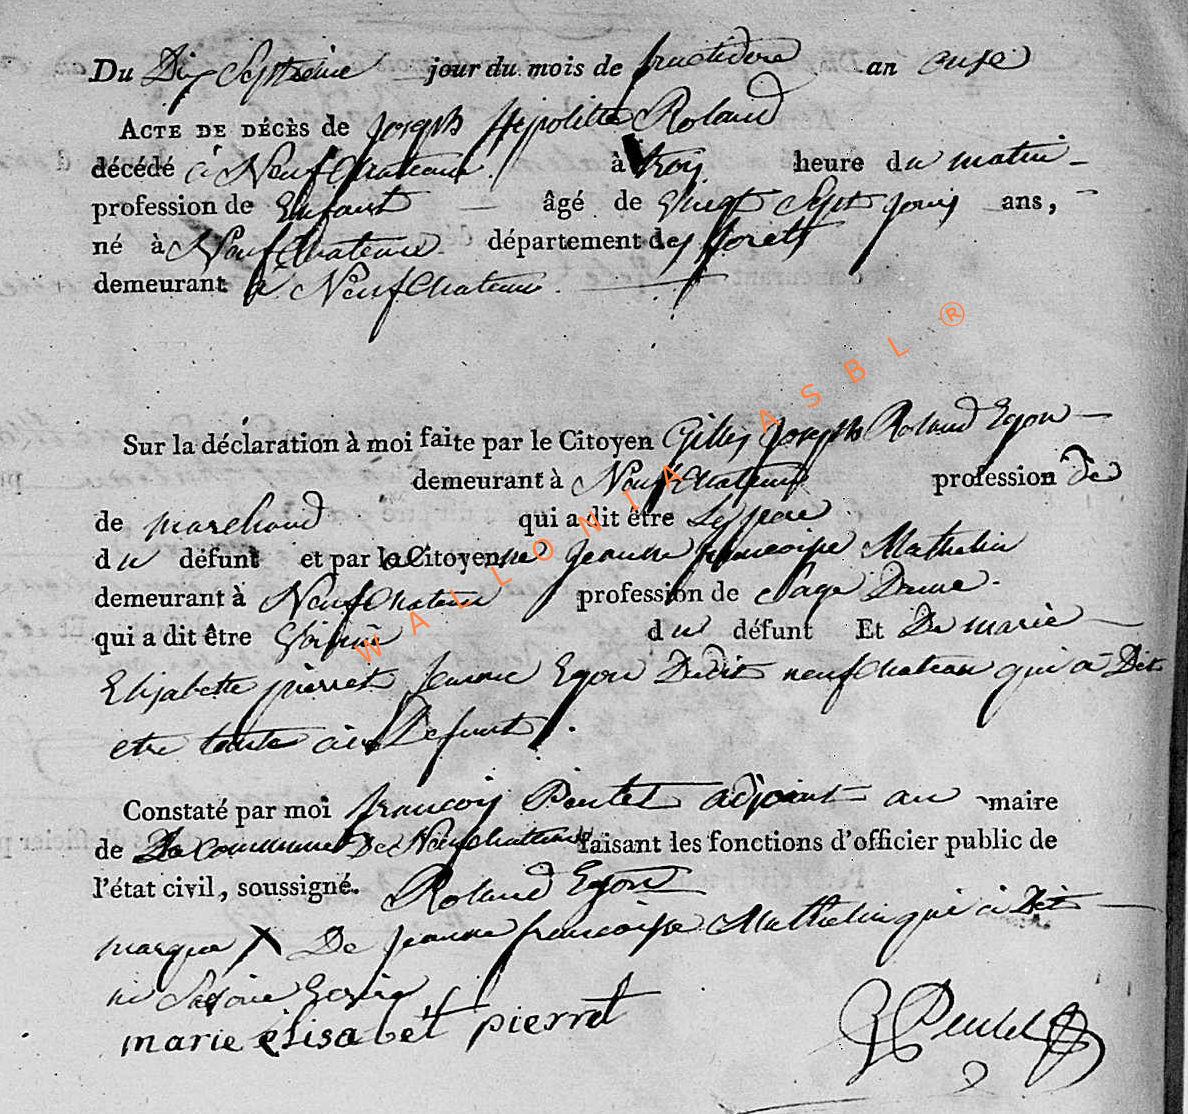 Du Dix Septieme jour du mois de fructidore an onse
ACTE DE DÉCÈS de Joseph Hipolitte Roland
décédé à Neufchateau à trois heure du matin
profession de Enfant âgé de Vingt Sept jours ans,
né à Neufchateau département des forets
demeurant à Neufchateau
Sur la déclaration à moi faite par le Citoyen Gilles Joseph Roland Egon
demeurant à Neufchateau profession de
de marchand qui a dit être Le pere
du défunt et par la Citoyenne Jeanne francoise Mathelin
demeurant à Neufchateau profession de Sage Dame
qui a dit être Voisine du défunt Et De marie
Elisabette pierret femme Egon Dudit neufchateau qui a Dit
etre tante au Defunt
Constaté par moi francois Peutet adjoint au maire
de La commune De Neufchateau faisant les fonctions d'officier public de
l'état civil, soussigné. Roland Egon
marque X De Jeanne francoise Mathelin qui a Dit
ne Savoir Ecrire
marie élisabett pierret
Peutet
WALLONIA ASBL ®